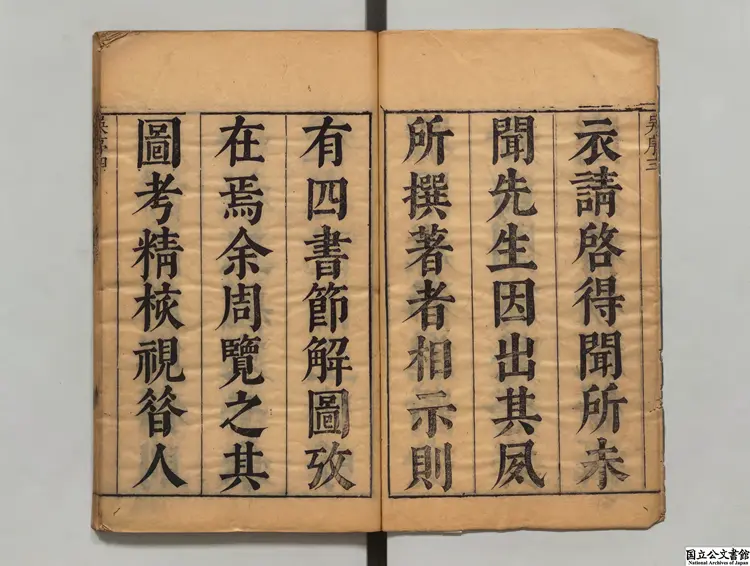 吳序三
衣請啓得聞所未
聞先生因出其夙
所撰著者相示則
有四書節解圖攷
在焉余周覽之其
圖考精核視㫺人
吳序四
国立公文書館
National Archives of Japan